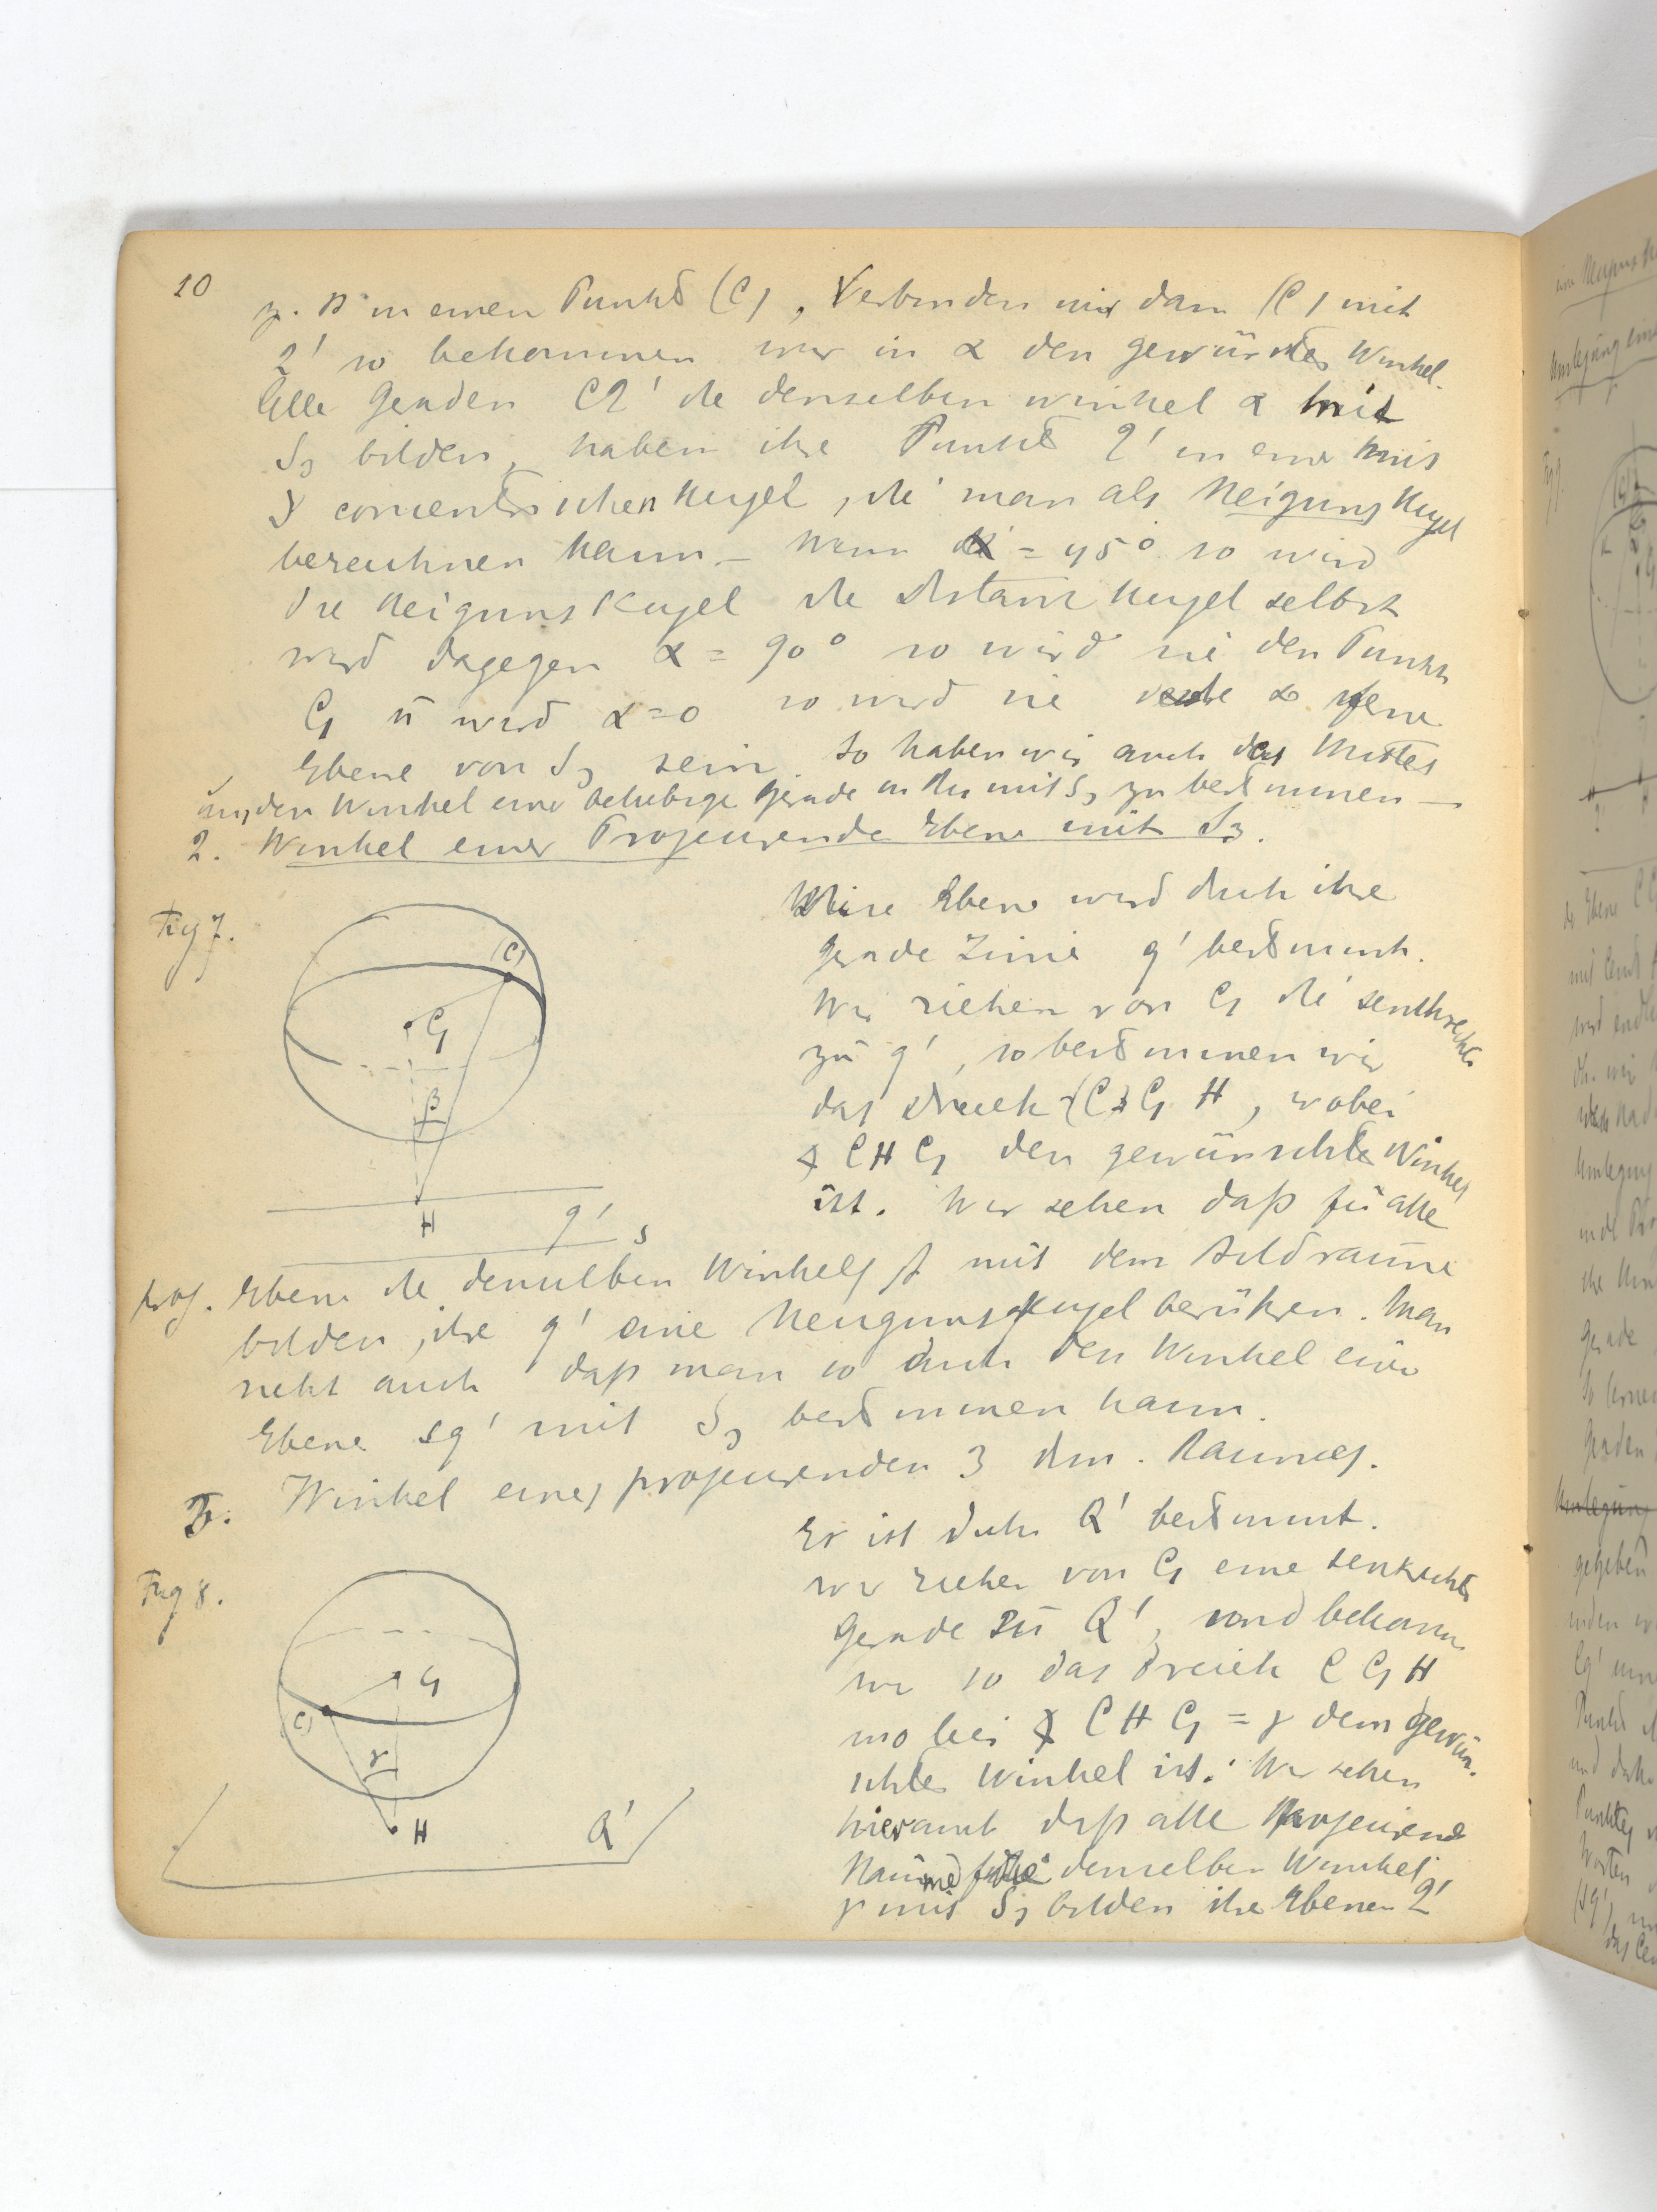 10
z. B in einen Punkt (C), Verbinden wir dan (C) mit
Q' so bekommen wir in α den gewünschte Winkel.
Alle Geraden CQ' die denselben winkel α mit
S3 bilden, haben ihre Punkte Q' in einer mit
concentrischen Kugel, die man als Neigungs Kugel
bezeichnen kann – Wenn α = 45° so wird
die Neigungs Kugel die distanz Kugel selbst
wird dagegen α = 90° so wird sie den Punkt
C1 ü wird α=0 so wird sie ∞ ferne
Ebene von S3 sein. So haben wir auch das Mittel
um den Winkel einer beliebige Gerade mit S3 zu bestimmen –
2. Winkel einer Projeurende Ebene mit S3.
Fig 7.
(C)
C1
β
H
g'
s
Ebene wird durch ihre
Gerade Linie g' bestimmt.
Wir ziehen von C1 die senkrechte
zu g', so bestimmen wir
das dreieck (C) C1 H, wobei
∢ C H C1 den gewünschte Winkel
ist. Wir sehen daß für alle
proj. Ebene die denselben Winkel mit dem Bildraume
bilden, ihre g' eine Neigungs Kugel berühren. Man
sieht auch daß man so auch den Winkel einer
Ebene sg' mit S3 bestimmen kann.
3. Winkel eines projeurenden 3 dim. Raumes.
Fig 8.
C1
(C)
γ
H
Q'
Er ist duch Q' bestimmt.
wir ziehen von C1 eine senkrechte
Gerade zu Q', und bekomm
wir so das dreieck C C1 H
wo bei ∢ C H C1 = γ dem gewün-
schte Winkel ist. Wir sehen
hieraus daß alle Projeurende
Räume die denselben Winkel
γ mit S3 bilden ihre Ebenen Q'